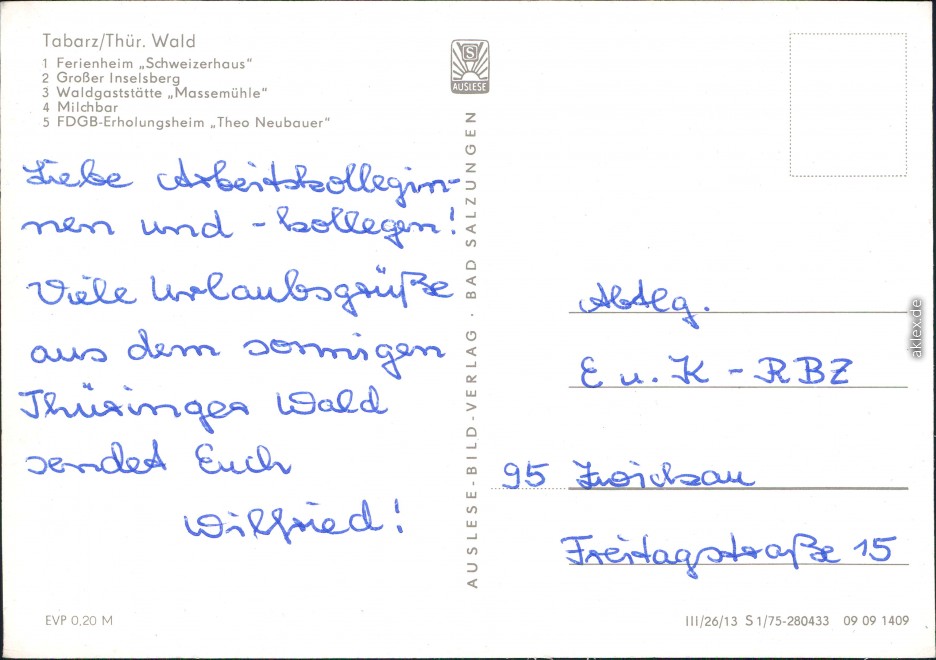 Tabarz/Thür. Wald
1 Ferienheim „Schweizerhaus“
2 Großer Inselsberg
3 Waldgaststätte „Massemühle“
4 Milchbar
5 FDGB-Erholungsheim „Theo Neubauer“
S
AUSLESE
Liebe Arbeitskollegin-
nen und - kollegen!
Viele Urlaubsgrüße
aus dem sonnigen
Thüringer Wald
sendet Euch
Wilfried!
AUSLESE-BILD-VERLAG · BAD SALZUNGEN
Abtlg.
E u. K - RBZ
95 Zwickau
Freitagstraße 15
EVP 0,20 M
III/26/13 S 1/75-280433 09 09 1409
aklex.de